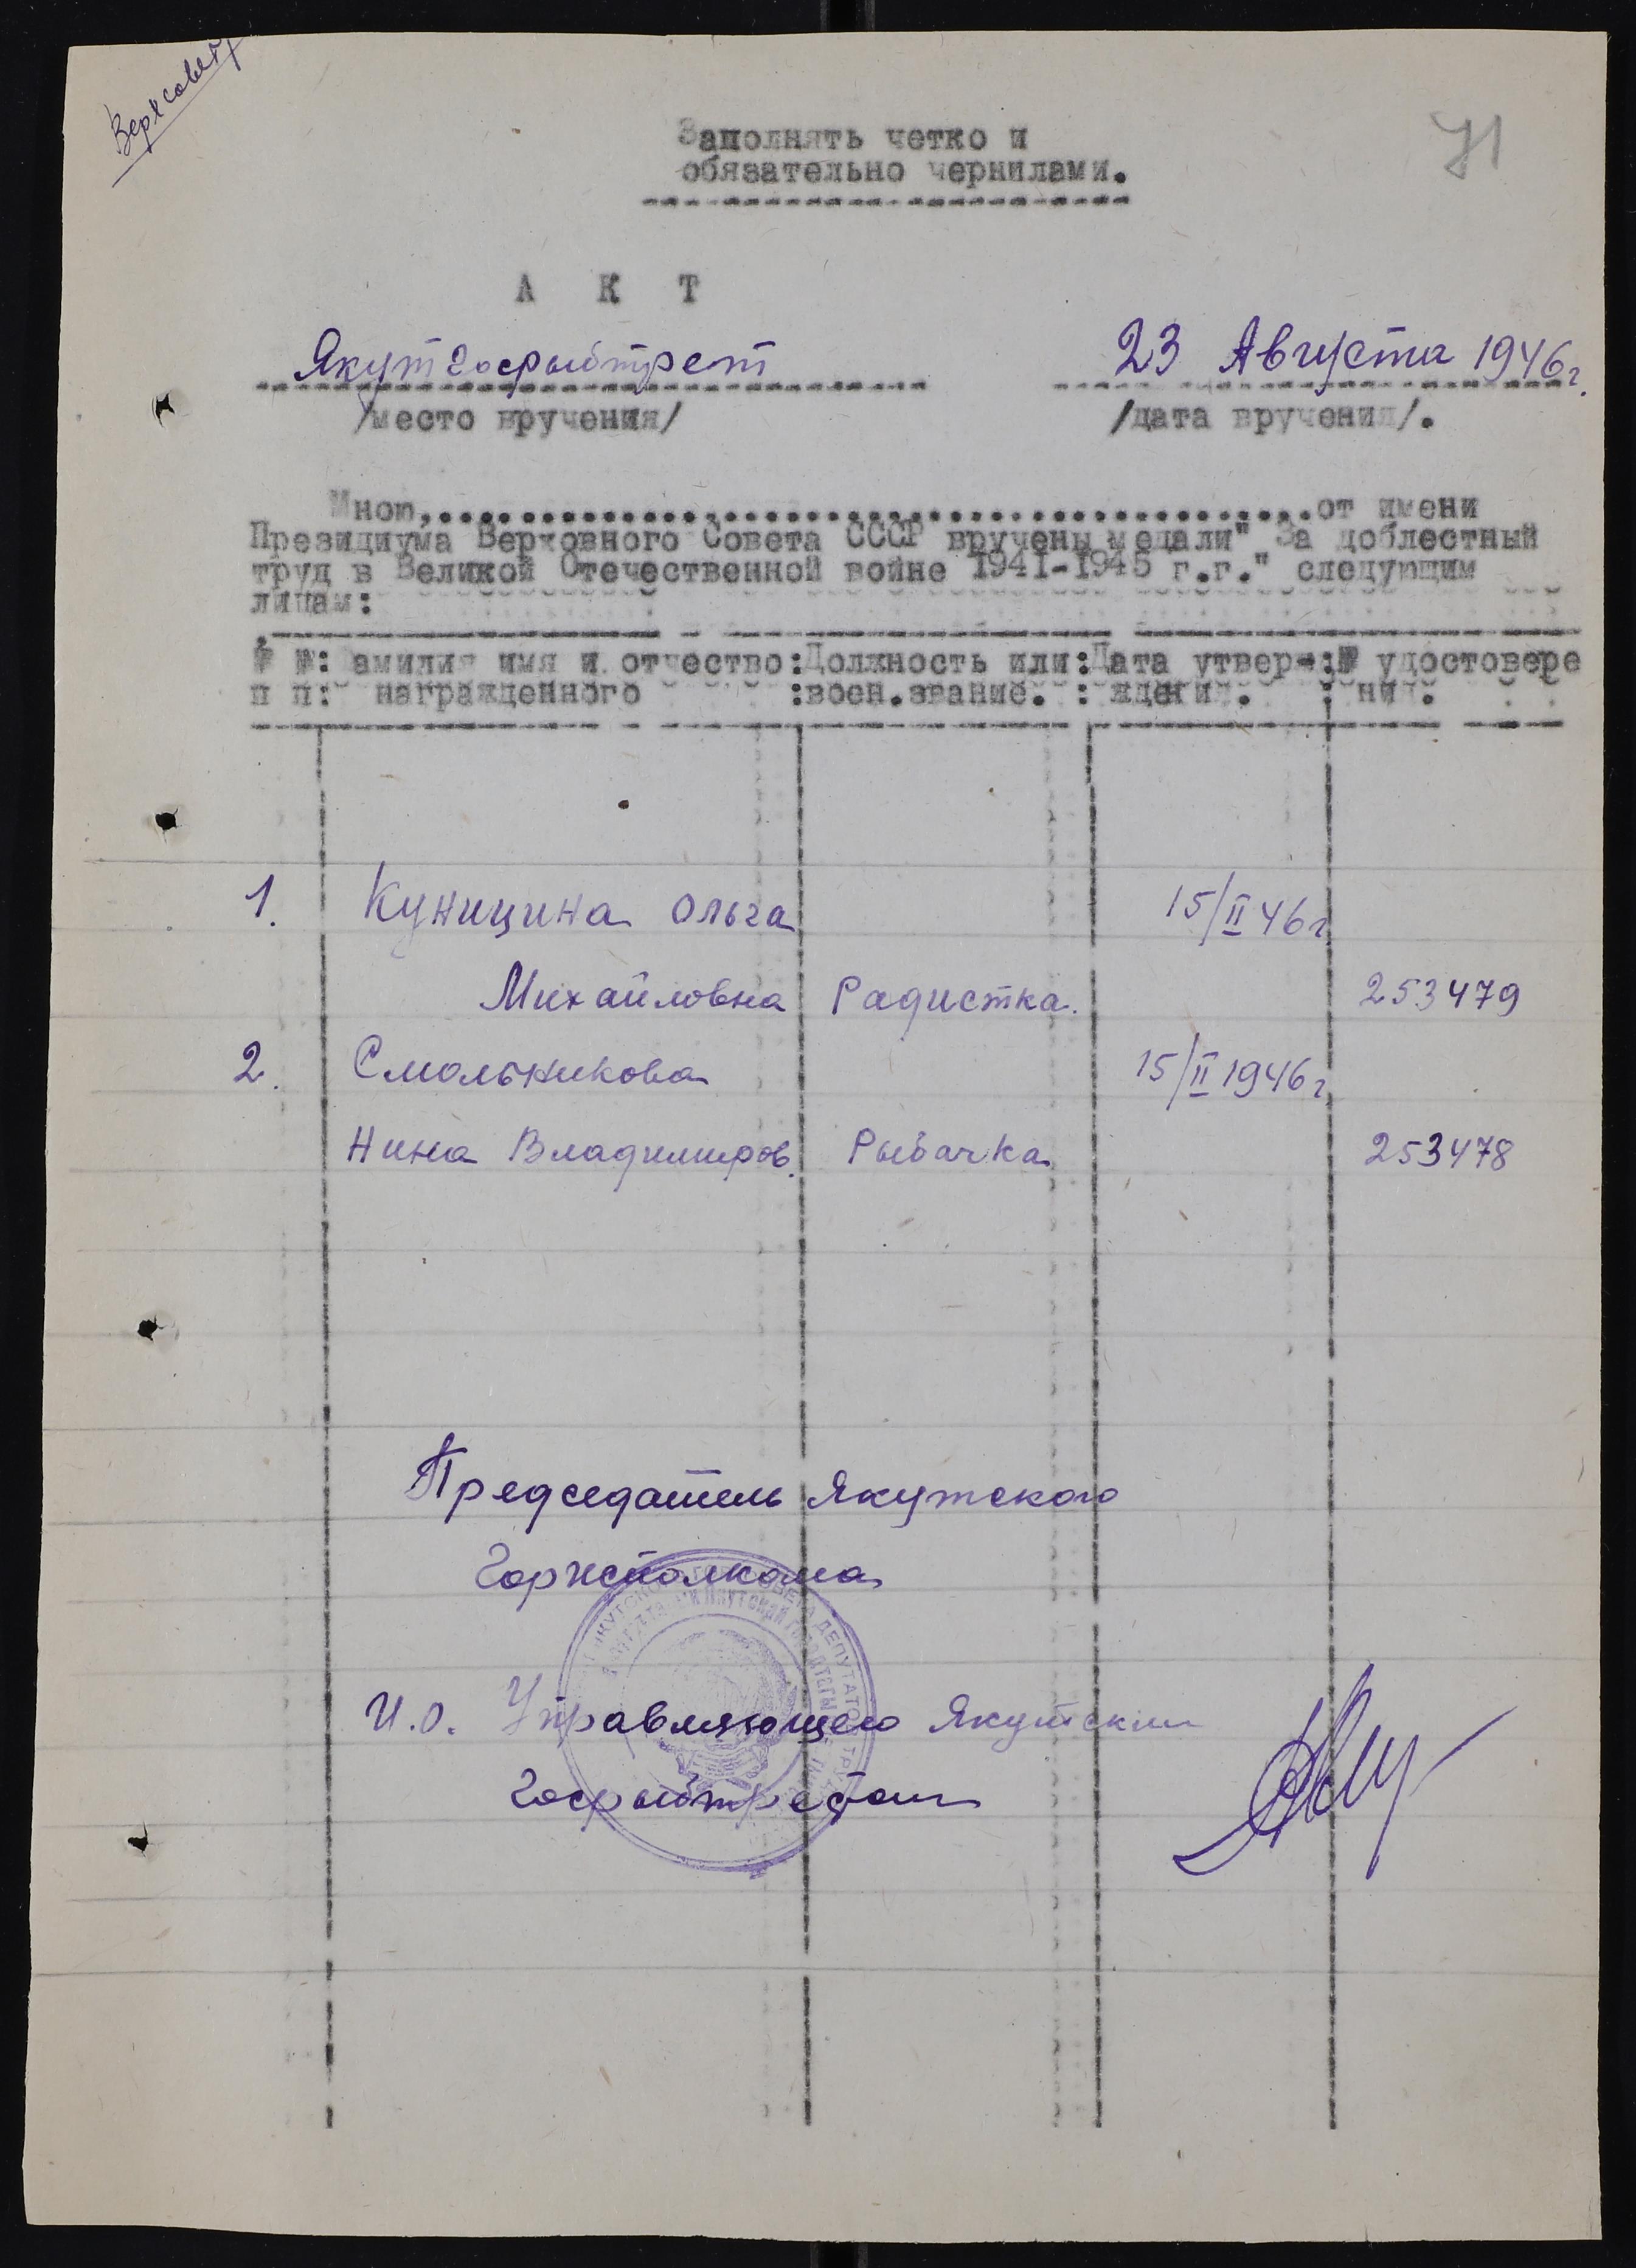 Верхсовет
71
Заполнять четко и
обязательно чернилами.
А К Т
Якутгосрыбтрест 23 Августа 1946г.
/место вручения/ /дата вручения/.
Мною,..........от имени
Президиума Верховного Совета СССР вручены медали" За доблестный
труд в Великой Отечественной войне 1941-1945 г.г." следующим
лицам:
№ №: Фамилия имя и отчество:Должность или:Дата утвер-:№ удостовере
п п: награжденного :воен.звание. : ждения. : ния.
1. Куницина Ольга 15/II 46г
Михайловна Радистка. 253479
2. Смольникова 15/II 1946г
Нина Владимиров. Рыбачка 253478
Председатель Якутского
Горисполкома
И.О. Управляющего Якутским
Госрыбтрестом